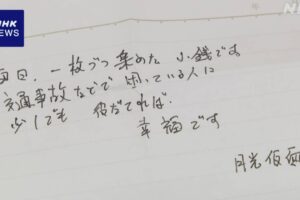 NHK
NEWS
N
毎日、一枚づつ集めた 小銭です
交通事故などで 困っている人に
少しでも 役だてれば、
幸福です
月光仮面